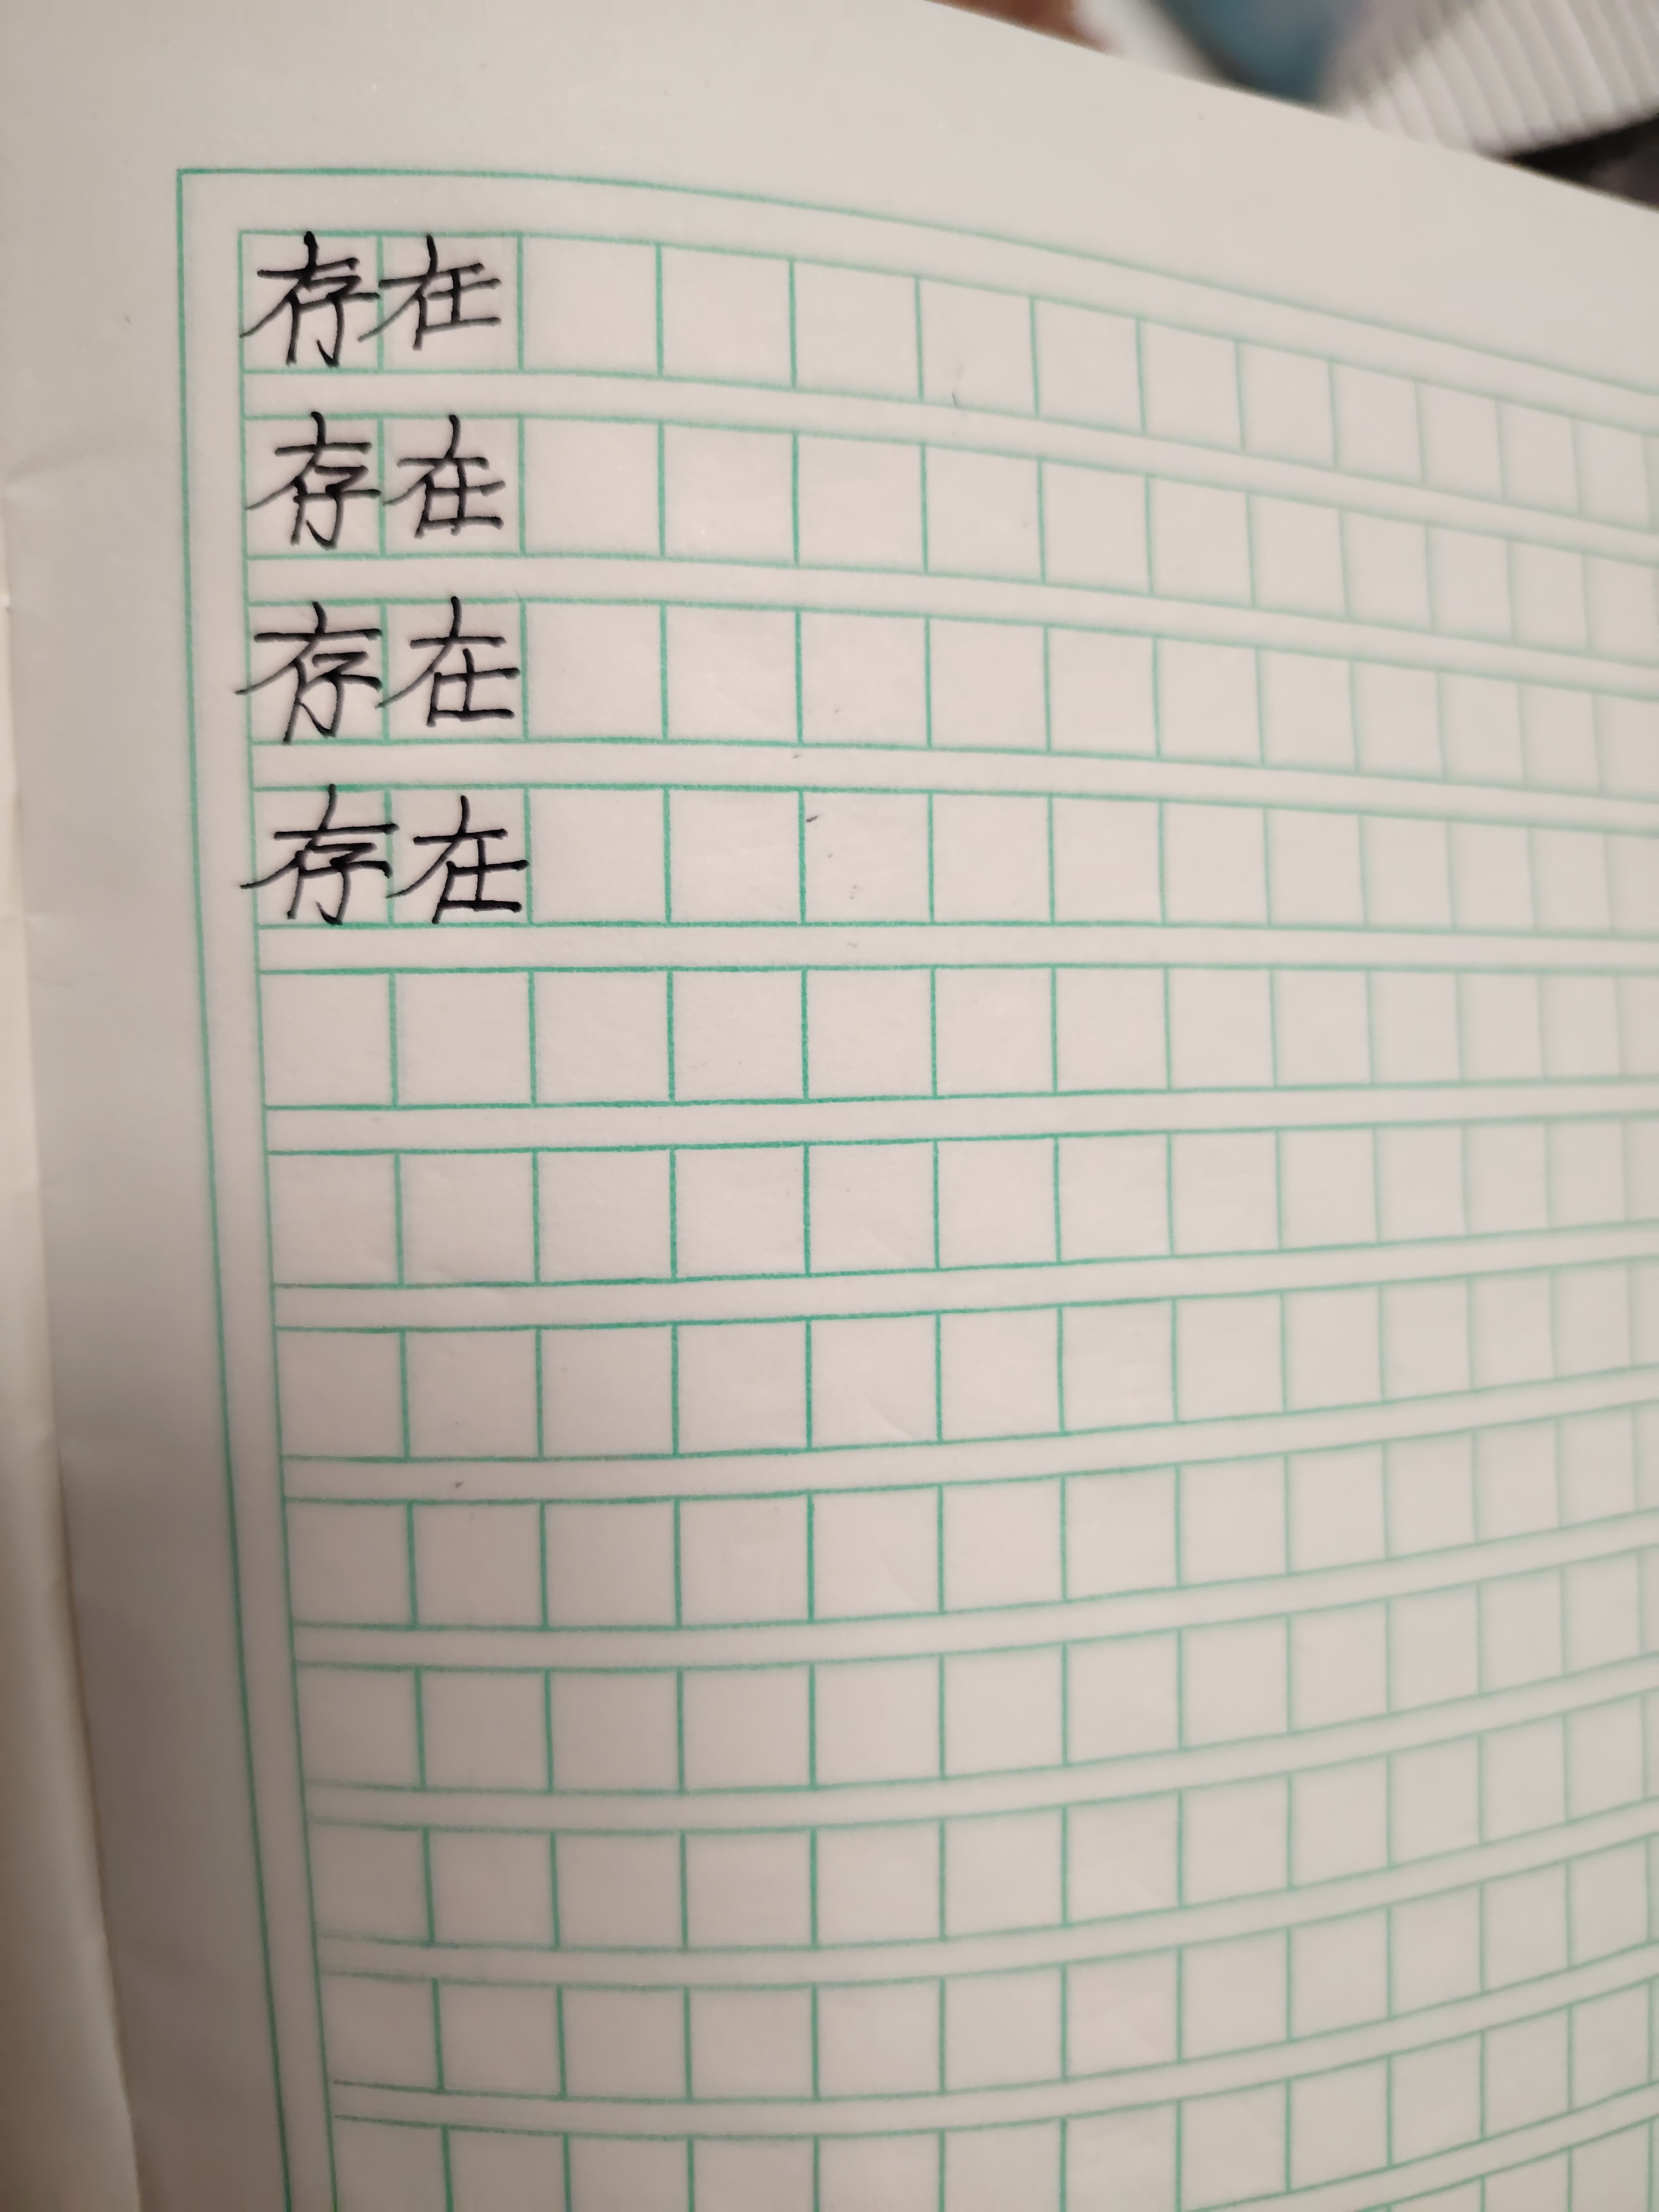 存在
存在
存在
存在